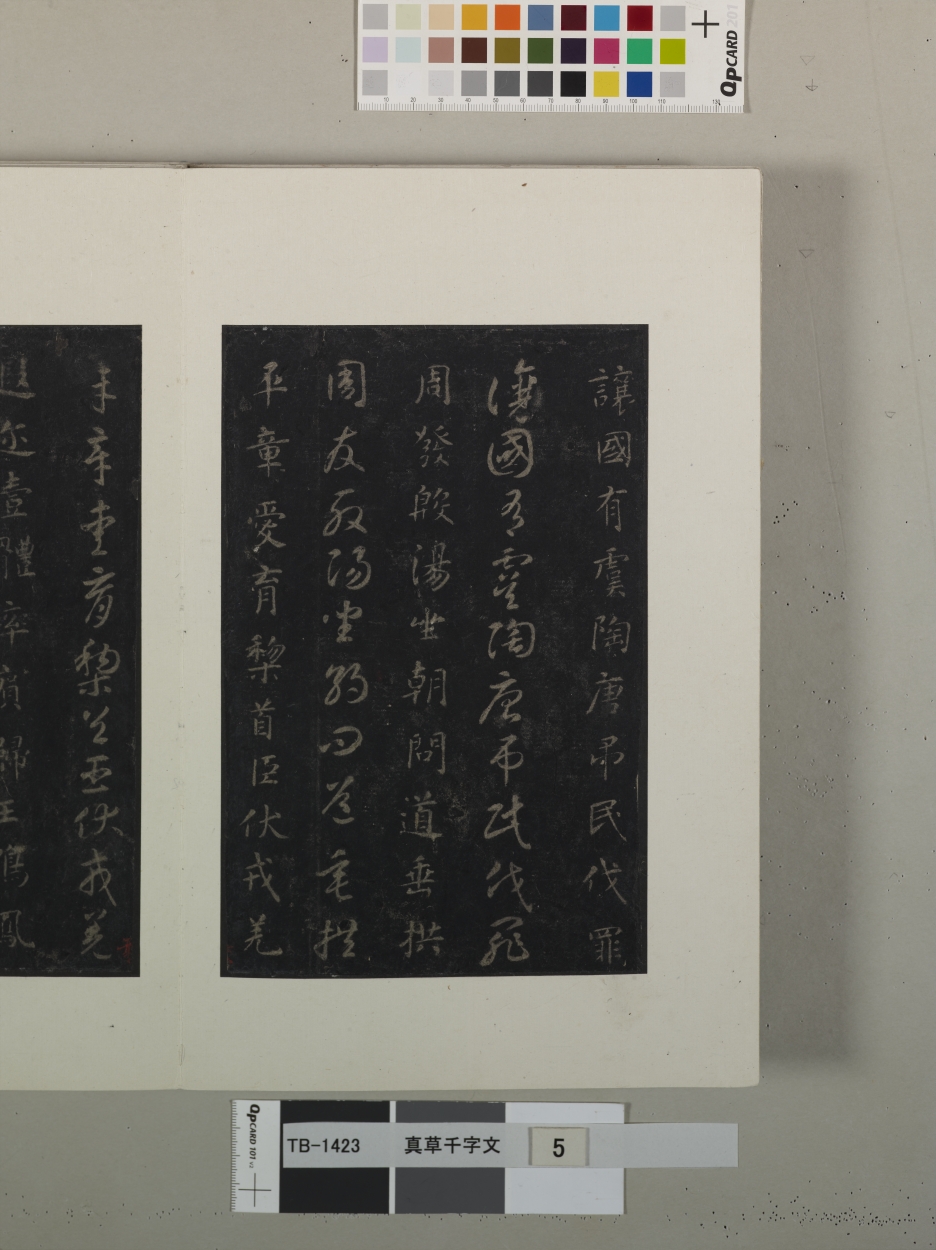 QPCARD 201
10 20 30 40 50 60 70 80 90 100 110 130
讓國有虞陶唐吊民伐罪
讓國有虞陶唐吊民伐罪
周發殷湯坐朝問道垂拱
周發殷湯坐朝問道垂拱
平章愛育黎首臣伏戎羌
平章愛育黎首臣伏戎羌
遐迩壹體率賓歸王鳴鳳
QPCARD 101 v2
TB-1423 真草千字文 5